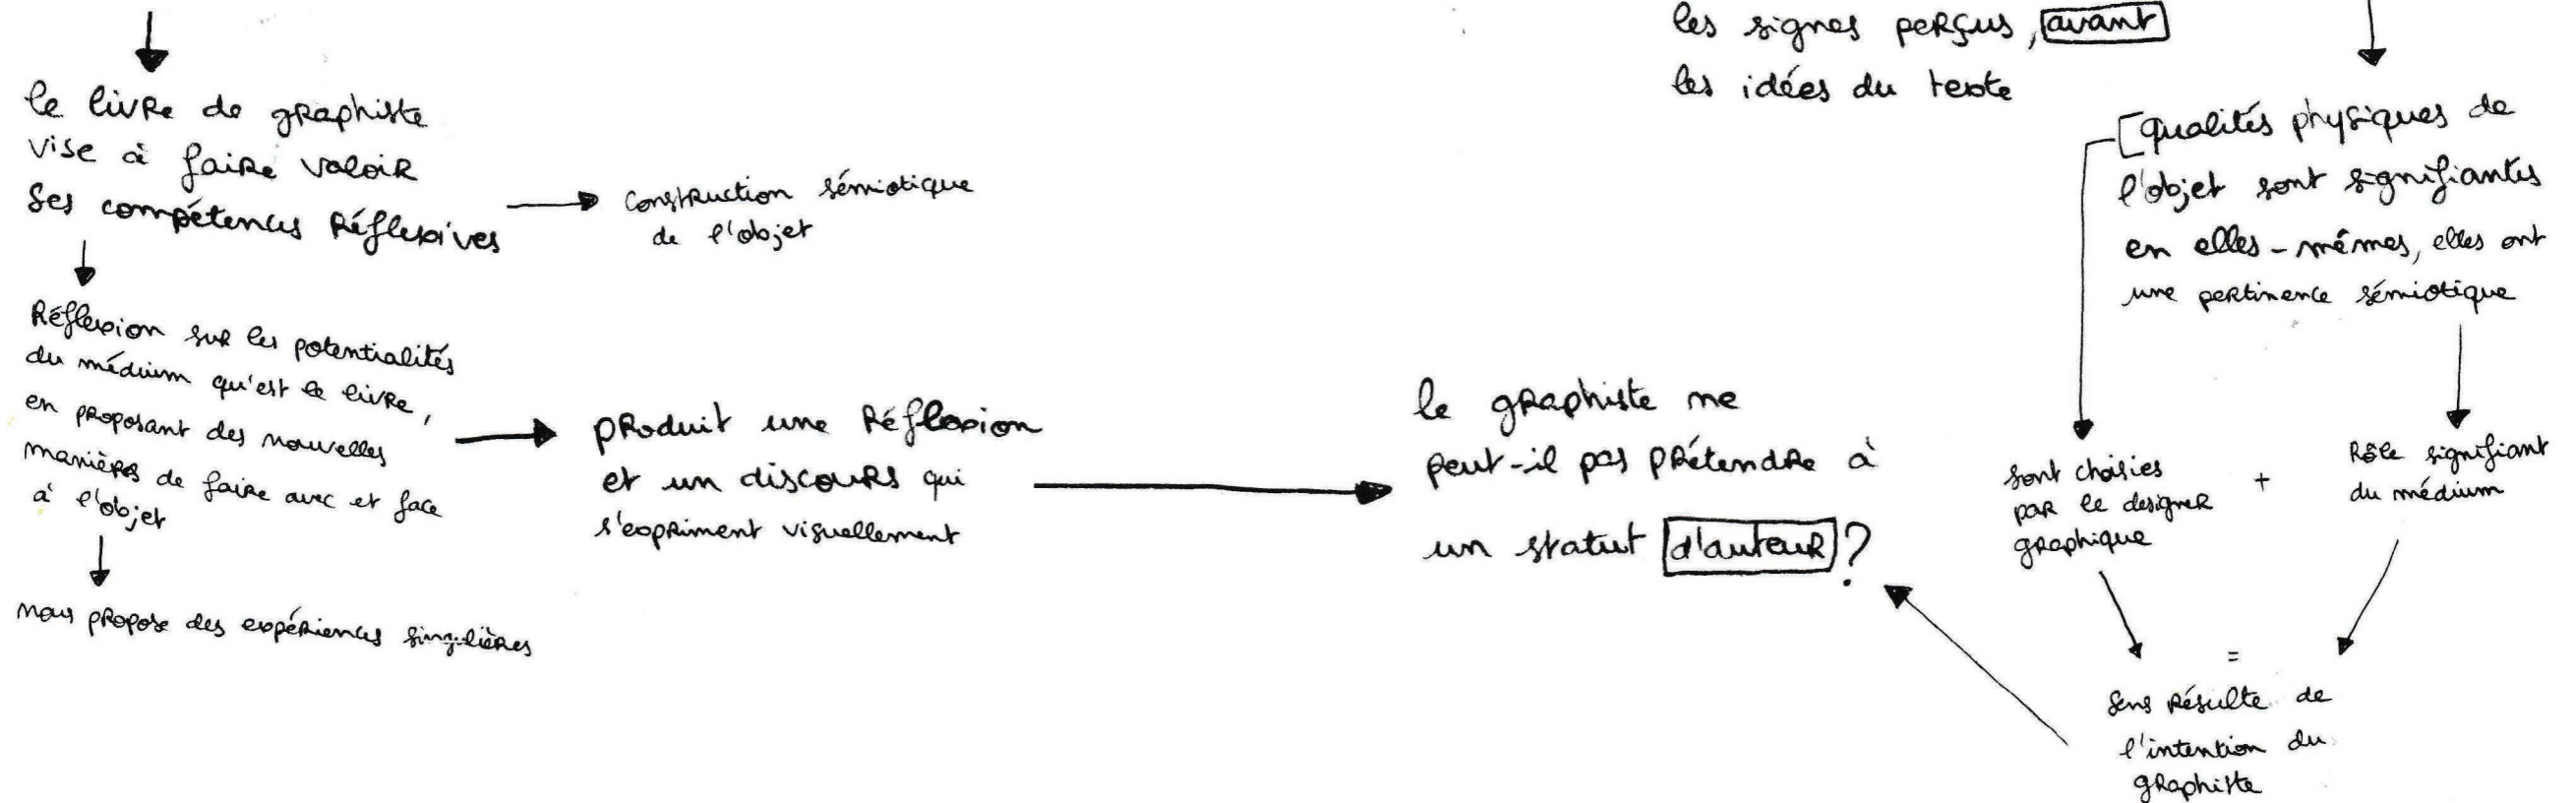 le livre de graphiste
vise à faire valoir
ses compétences réflexives
construction sémiotique
de l'objet
Réflexion sur les potentialités
du médium qu'est le livre,
en proposant des nouvelles
manières de faire avec et face
à l'objet
nous propose des expériences singulières
produit une réflexion
et un discours qui
s'expriment visuellement
les signes perçus, avant
les idées du texte
le graphiste ne
peut-il pas prétendre à
un statut d'auteur ?
[qualités physiques de
l'objet sont signifiantes
en elles-mêmes, elles ont
une pertinence sémiotique
sont choisies
par le designer
graphique
+
Rôle signifiant
du médium
=
sens résulte de
l'intention du
graphiste